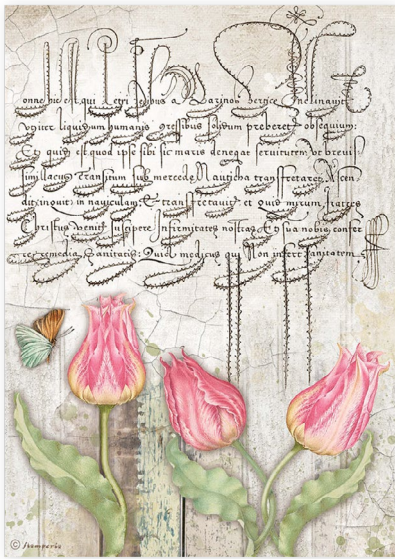 onne hic est, qui etri pedibus a Marino vertice Inclinavit
liquidum humanis gressibus solidum preberet obsequium:
Et quid est quod ipse sibi sic maris denegat servitutem, ut brevis
simi lacus transitum sub mercede Nauticha transfretaret. Ascen-
dit, inquit: in naviculam, Et transfretavit: et quid mirum, fratres
Christus venit suscipere Infirmitates nostras Et sua nobis confer
re remedia Sanitatis: Quia medicus qui Non infert sanitatem
© Stamperia